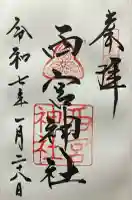 奉拝
西宮神社
西宮神社
令和七年一月二十八日